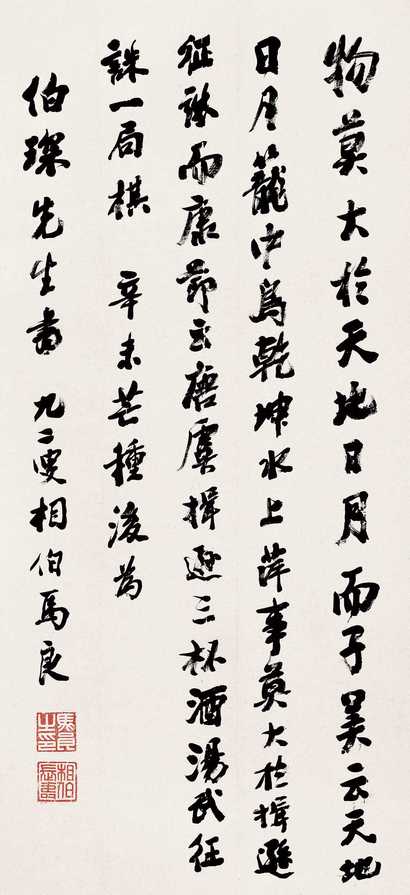 物莫大於天地日月而子美云天地
日月籠中鳥乾坤水上萍事莫大於揖遜
征誅而康節云唐虞揖遜三杯酒湯武征
誅一局棋 辛未芒種後為
伯琛先生書 九二叟相伯馬良
馬良之印
相伯